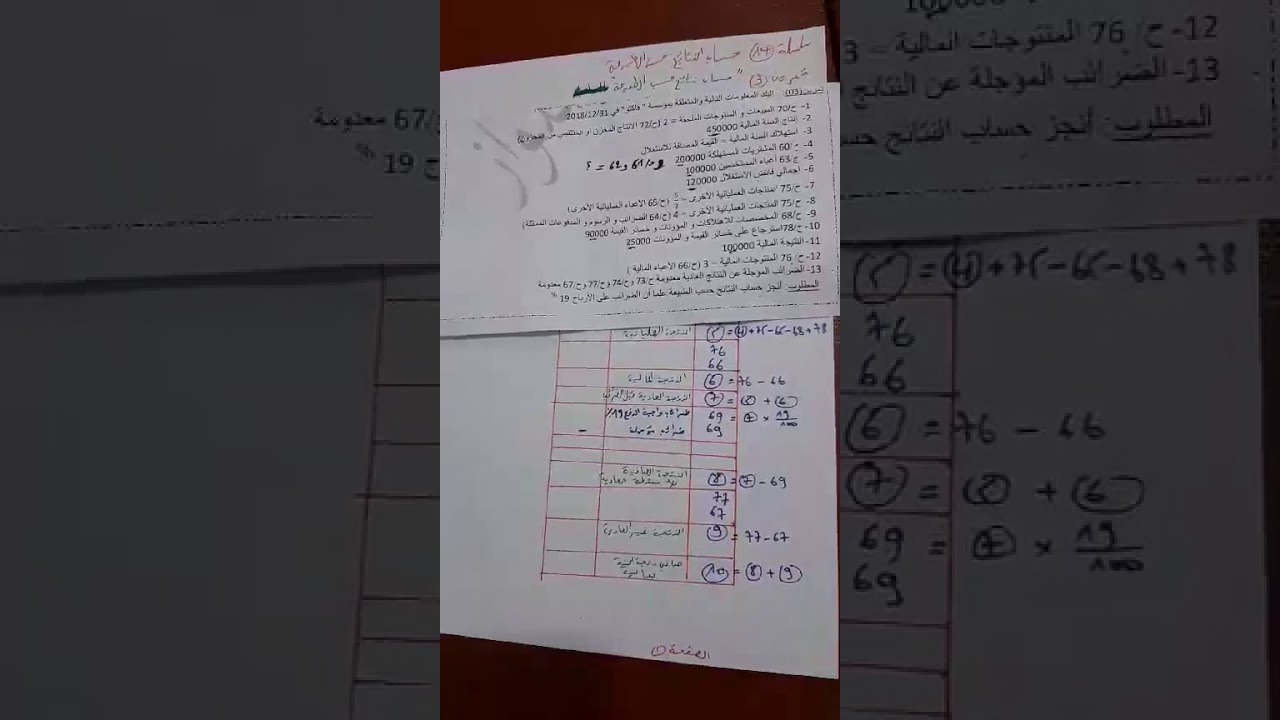 سلسلة (14) حساب النتائج حسب الطبيعة
تمرين (3) "حساب نتائج حسب الطبيعة
تمرين(03): إليك المعلومات التالية والمتعلقة بمؤسسة " فاكتو" في 2018/12/31
1- ح/70 المبيعات و المنتوجات الملحقة = 2 (ح/72 الانتاج المخزن او المنتقص من المخزون)
2- إنتاج السنة المالية 450000
3- استهلاك السنة المالية = القيمة المضافة للاستغلال
4- ح/60 المشتريات المستهلكة 200000 وح/61 و 62 = ؟
5- ح/63 أعباء المستخدمين 100000
6- إجمالي فائض الاستغلال 120000
7- ح/75 المنتجات العملياتية الأخرى = (ح/65 الاعباء العملياتية الأخرى)
8- ح/75 المنتجات العملياتية الأخرى = 4 (ح/64 الضرائب و الرسوم و المدفوعات المماثلة)
9- ح/68 المخصصات للاهتلاكات و المؤونات و خسائر القيمة 90000
10- ح/78 استرجاع على خسائر القيمة و المؤونات 25000
11- النتيجة المالية 100000
12- ح/ 76 المنتوجات المالية = 3 (ح/66 الاعباء المالية )
13- الضرائب المؤجلة عن النتائج العادية معدومة ح/73 وح/74 وح/77 وح/67 معدومة
المطلوب: أنجز حساب النتائج حسب الطبيعة علما أن الضرائب على الأرباح 19 %
النتيجة العملياتية (5) = (4) + 75 - 65 - 68 + 78
76
66
النتيجة المالية (6) = 76 - 66
النتيجة العادية قبل الضرائب (7) = (5) + (6)
ضرائب واجبة الدفع 19% 69 = (7) × 19/100
ضرائب مؤجلة 69 -
النتيجة الصافية (8) = (7) - 69
77
67
النتيجة غير العادية (9) = 77 - 67
صافي نتيجة السنة المالية (10) = (8) + (9)
الصفحة (1)
100000
12- ح/ 76 المنتوجات المالية = 3
13- الضرائب المؤجلة عن النتائج
المطلوب: أنجز حساب النتائج حسب
/67 معدومة
19 %
(5) = (4) + 75 - 65 - 68 + 78
76
66
(6) = 76 - 66
(7) = (5) + (6)
69 = (7) × 19/100
69